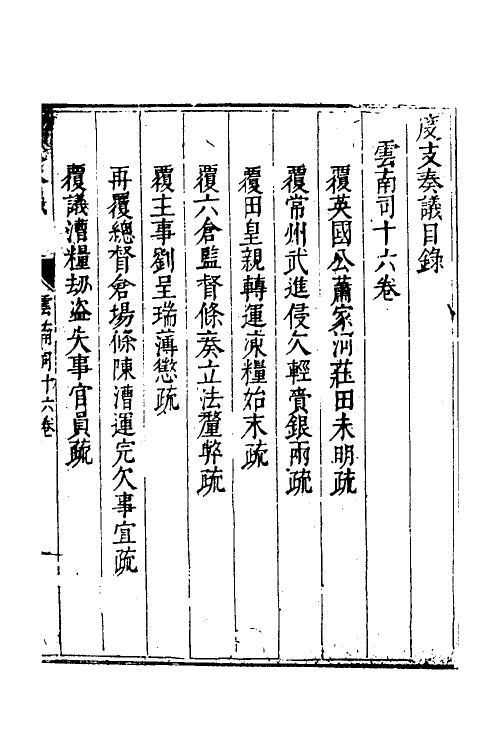 度支奏議目錄
雲南司十六卷
覆英國公蕭家河莊田未明疏
覆常州武進侵欠輕賫銀兩疏
覆田皇親轉運凍糧始末疏
覆六倉監督條奏立法釐弊疏
覆主事劉呈瑞薄懲疏
再覆總督倉場條陳漕運完欠事宜疏
覆議漕糧刼盜失事官員疏
雲南司十六卷